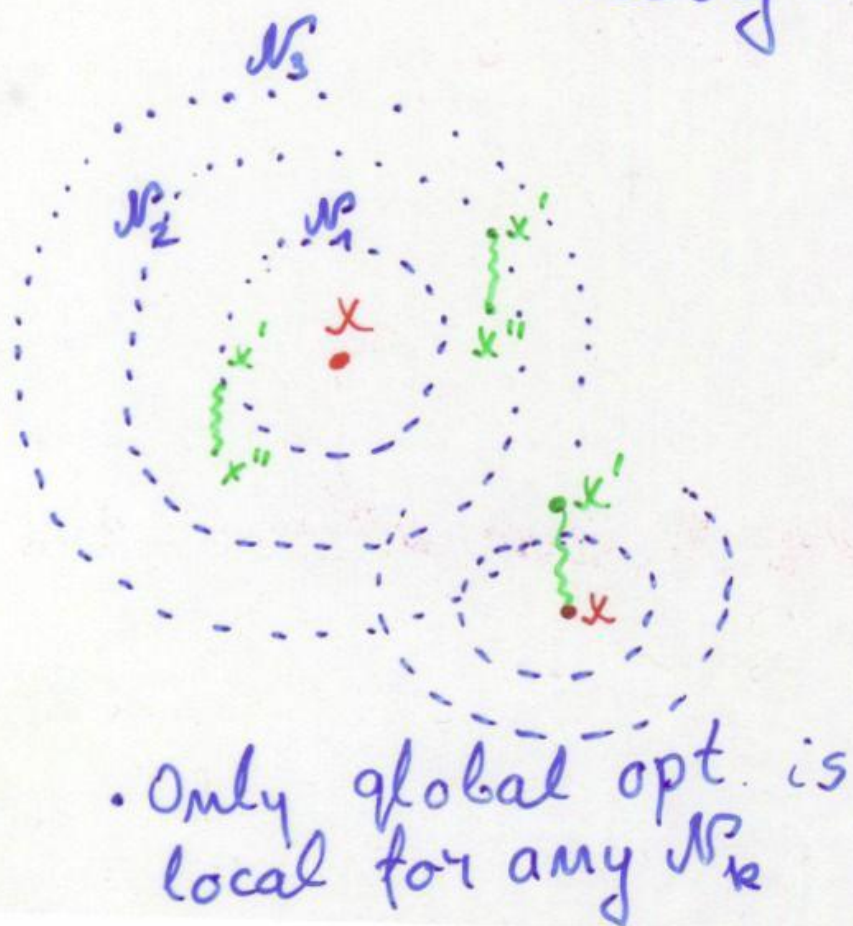 N₃
N₂ N₁
x'
X
x' x"
x"
x'
x
• Only global opt. is
local for any Nₖ